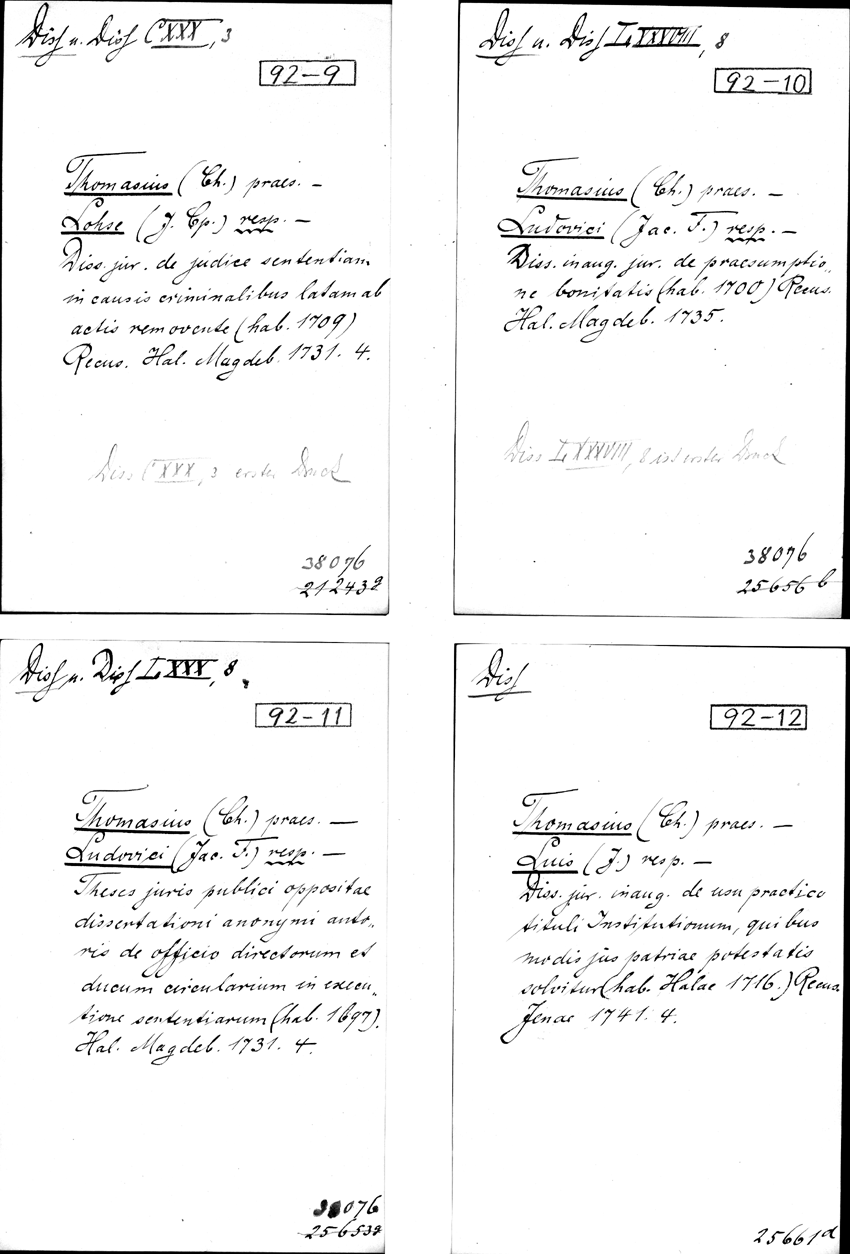 Diss u. Diss CXXX, 3
92-9
Thomasius (Ch.) praes. —
Lohse (J. Cp.) resp. —
Diss. jur. de judice sententiam
in causis criminalibus latam ab
actis removente (hab. 1709)
Recus. Hal. Magdeb. 1731. 4.
Diss CXXX, 3 erster Druck
38076
21243a
Diss u. Diss LXXXVIII, 8
92-10
Thomasius (Ch.) praes. —
Ludovici (Jac. F.) resp. —
Diss. inaug. jur. de praesumptio„
ne bonitatis (hab. 1700) Recus.
Hal. Magdeb. 1735.
Diss LXXXVIII, 8 ist erster Druck
38076
25656b
Diss u. Diss LXXX, 8
92-11
Thomasius (Ch.) praes. —
Ludovici (Jac. F.) resp. —
Theses juris publici oppositae
dissertationi anonymi auto„
ris de officio directorum et
ducum circularium in execu„
tione sententiarum (hab. 1697).
Hal. Magdeb. 1731. 4.
38076
25653a
Diss
92-12
Thomasius (Ch.) praes. —
Luis (J.) resp. —
Diss. jur. inaug. de usu practico
tituli Institutionum, quibus
modis jus patriae potestatis
solvitur (hab. Halae 1716.) Recus.
Jenae 1741. 4.
25661d